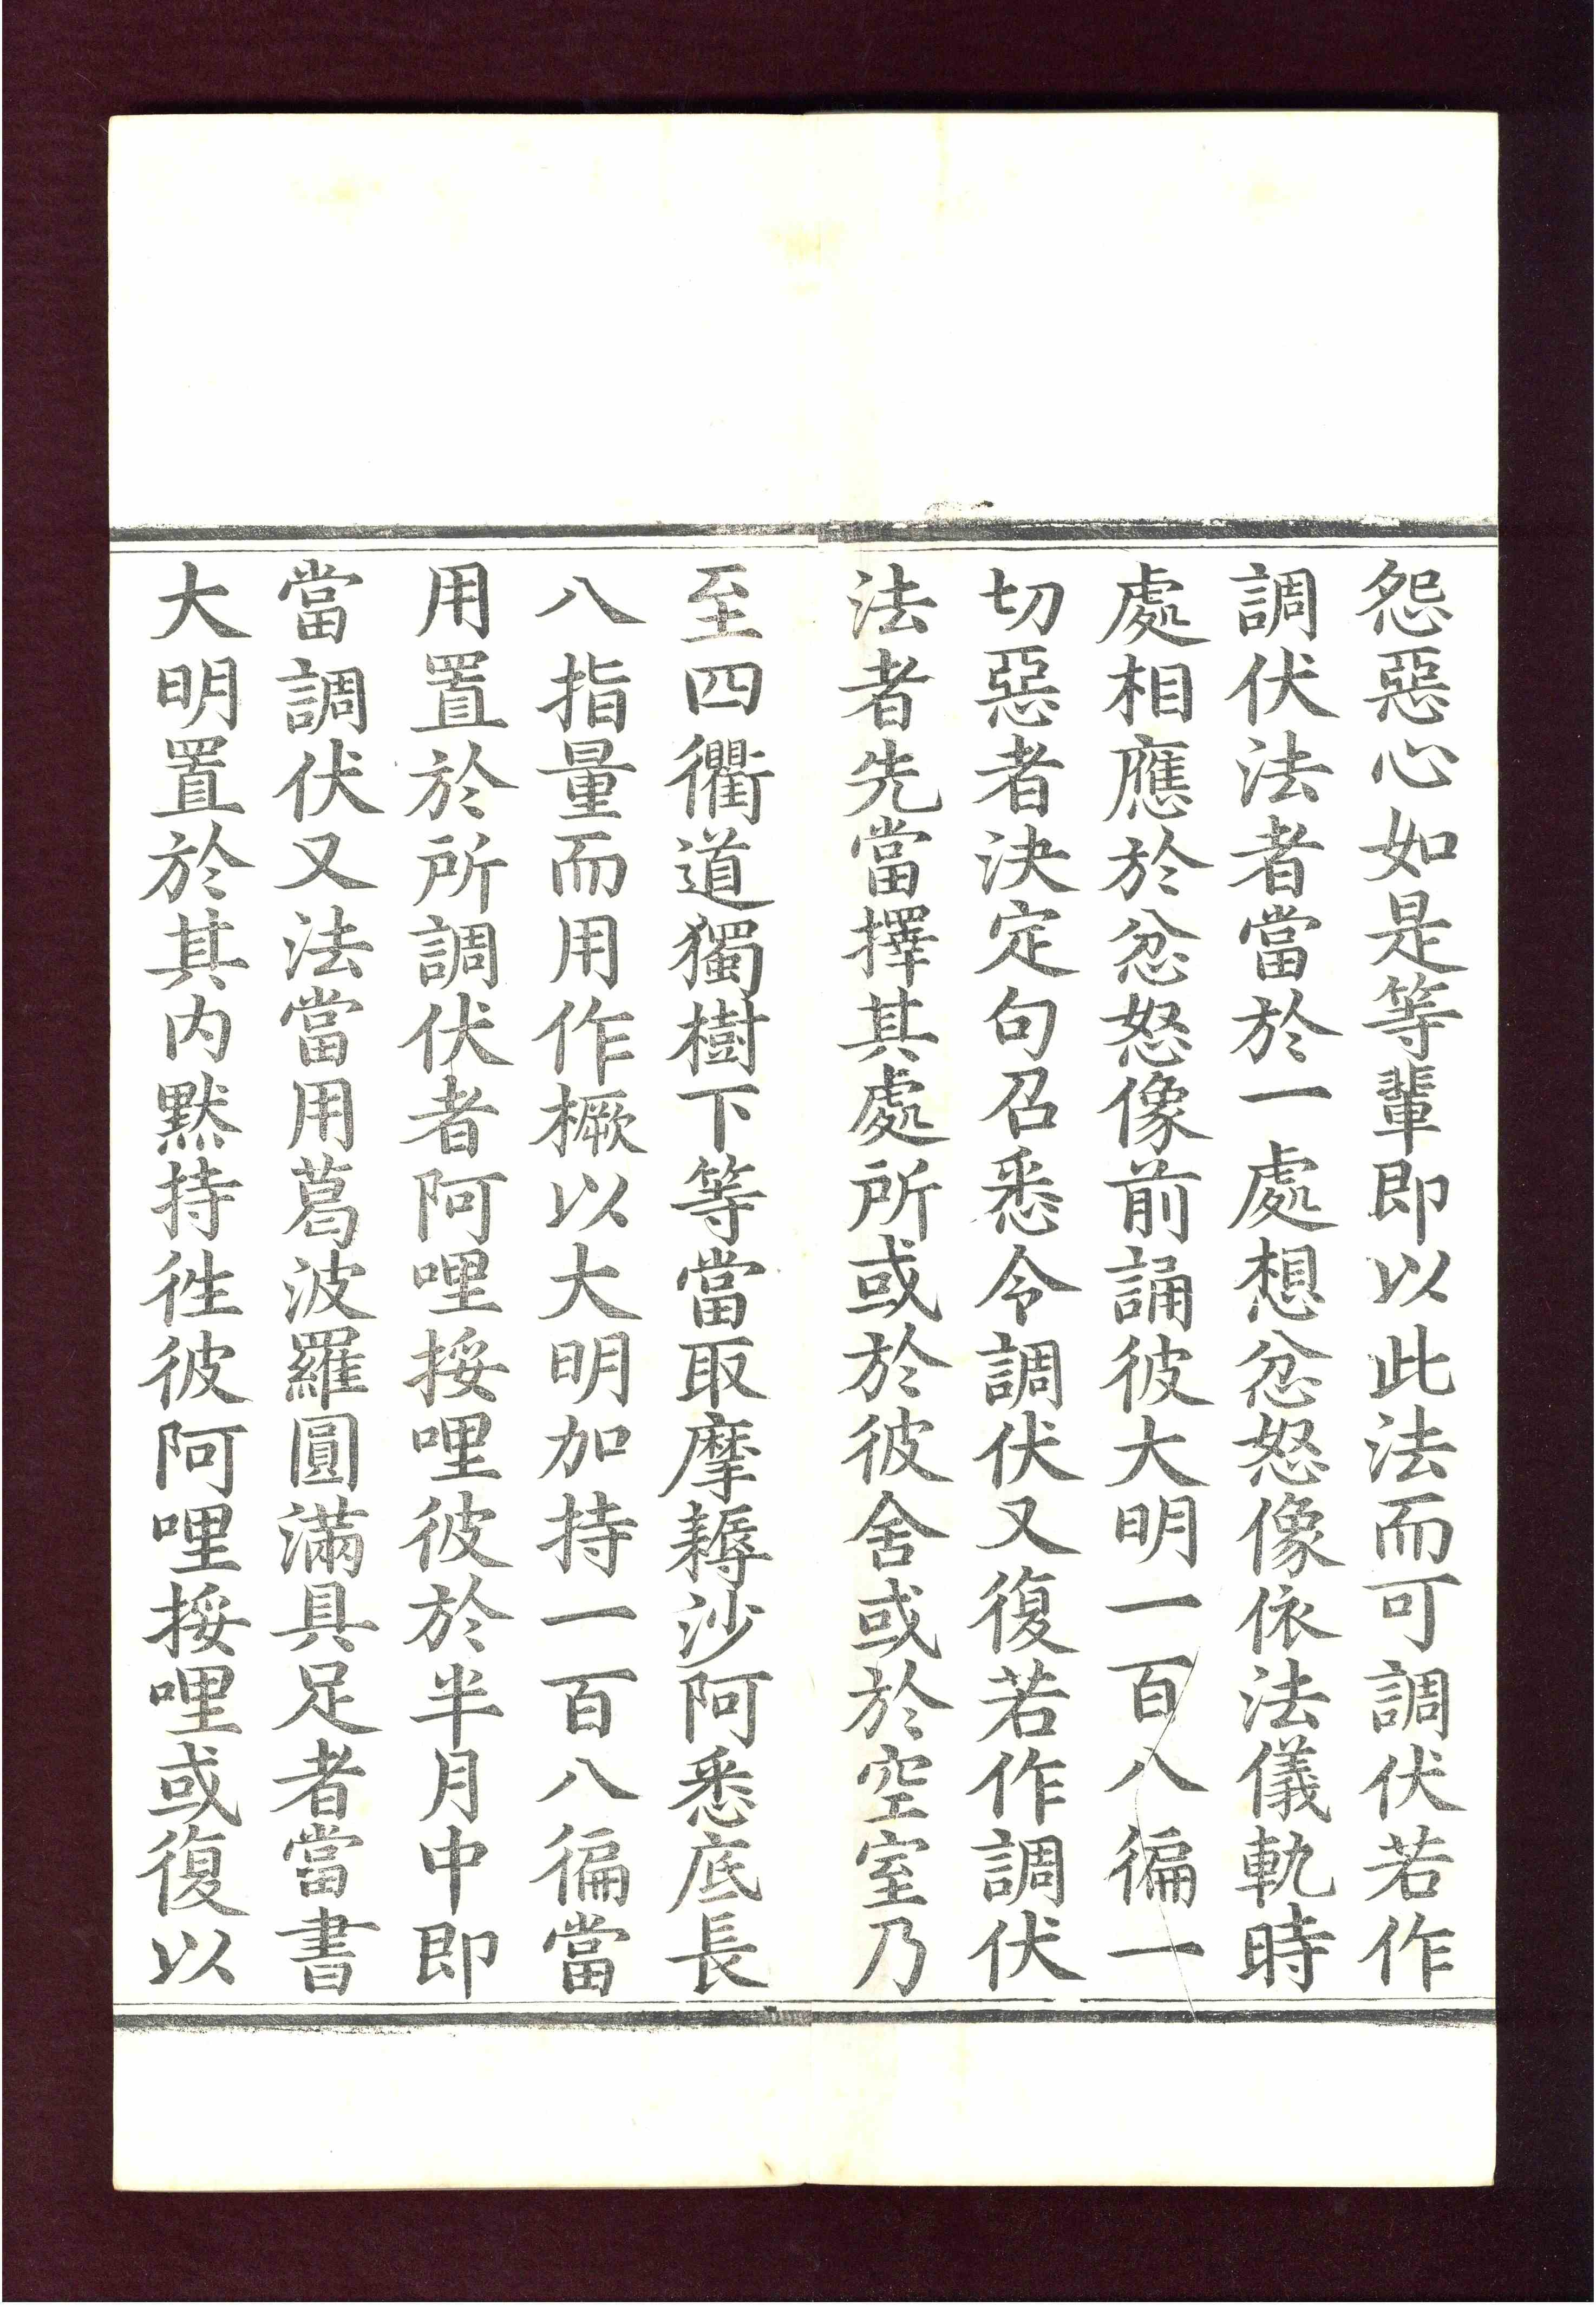 怨惡心如是等輩即以此法而可調伏若作
調伏法者當於一處想忿怒像依法儀軌時
處相應於忿怒像前誦彼大明一百八徧一
切惡者決定句召悉令調伏又復若作調伏
法者先當擇其處所或於彼舍或於空室乃
至四衢道獨樹下等當取摩耨沙阿悉底長
八指量而用作橛以大明加持一百八徧當
用置於所調伏者阿哩挼哩彼於半月中即
當調伏又法當用葛波羅圓滿具足者當書
大明置於其内黙持徃彼阿哩挼哩或復以